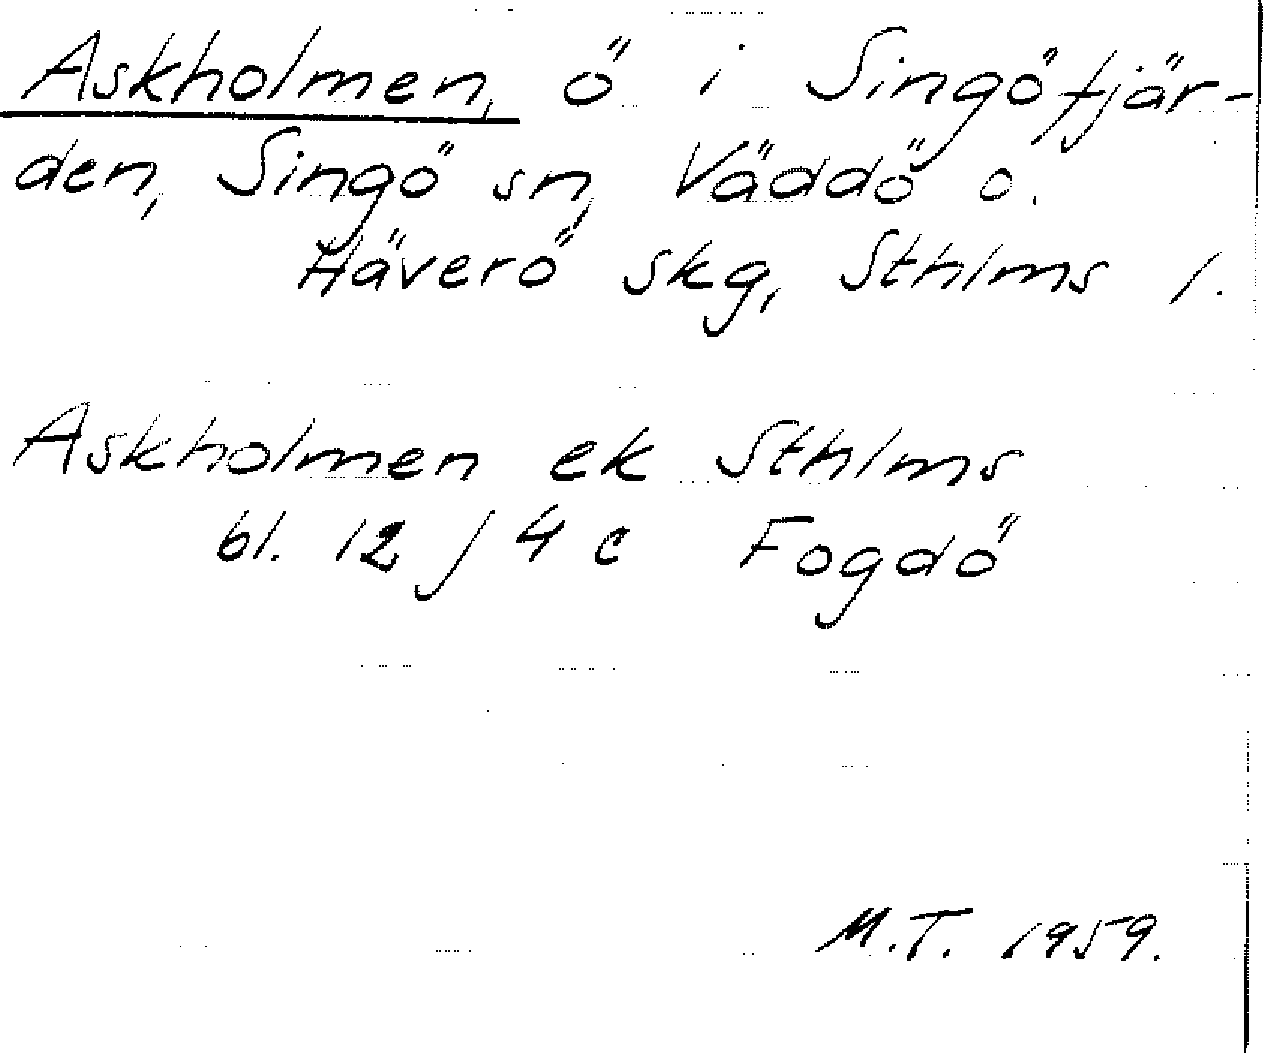 Askholmen, ö i Singöfjär-
den, Singö sn, Väddö o.
Häverö skg, Sthlms l.
Askholmen ek Sthlms
bl. 12 j 4 c Fogdö
M.T. 1959.